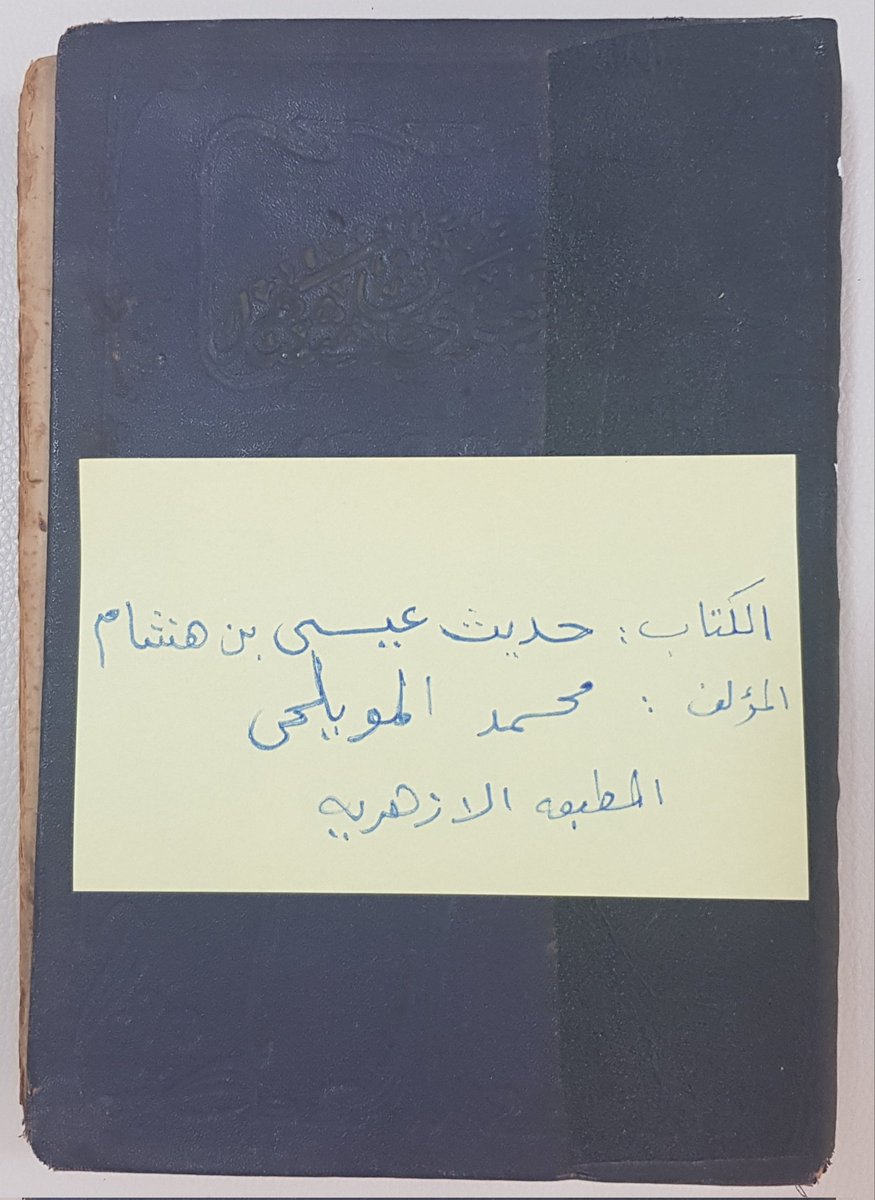 الكتاب : حديث عيسى بن هشام
المؤلف : محمد المويلحى
المطبعه الازهريه